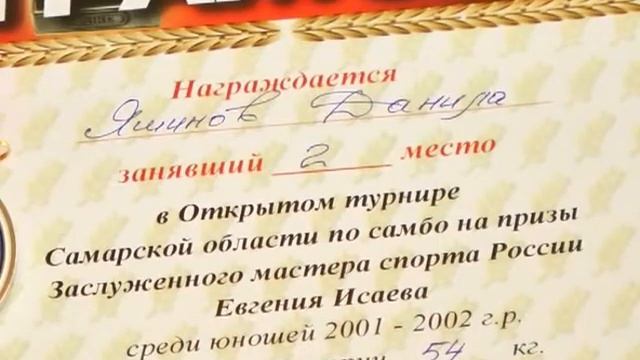 Награждается
Яшинов Данила
занявший 2 место
в Открытом турнире
Самарской области по самбо на призы
Заслуженного мастера спорта России
Евгения Исаева
среди юношей 2001 - 2002 г.р.
54 кг.